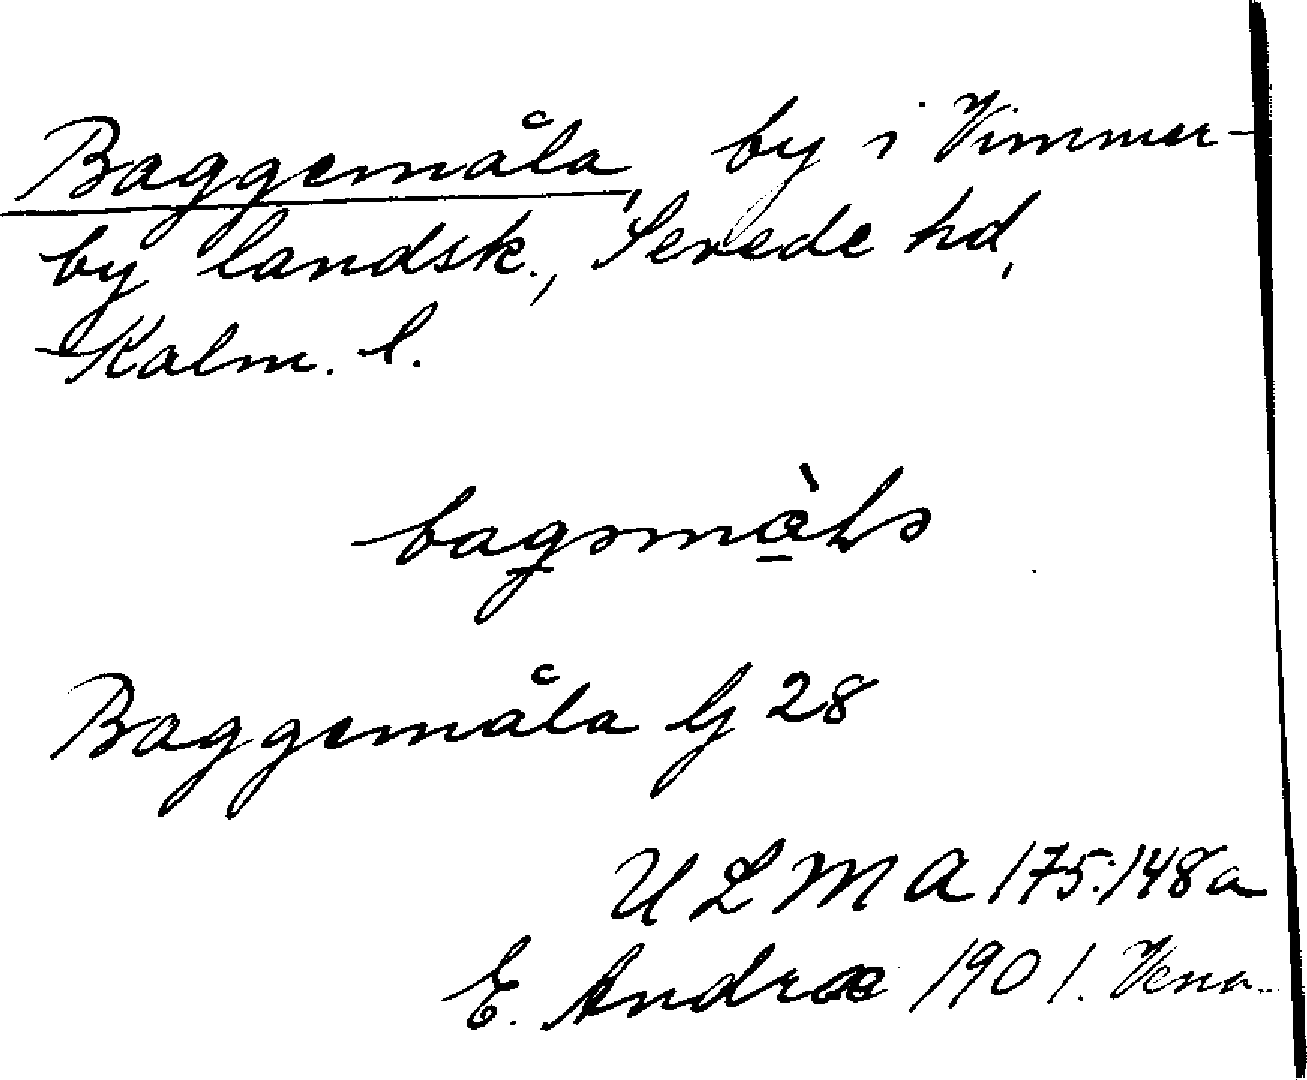 Baggemåla, by i Vimmer-
by landsk., Sevede hd,
Kalm. l.
Baggemåla G 28
ULMA 175:148a
E. Andræ 1901. Vena.